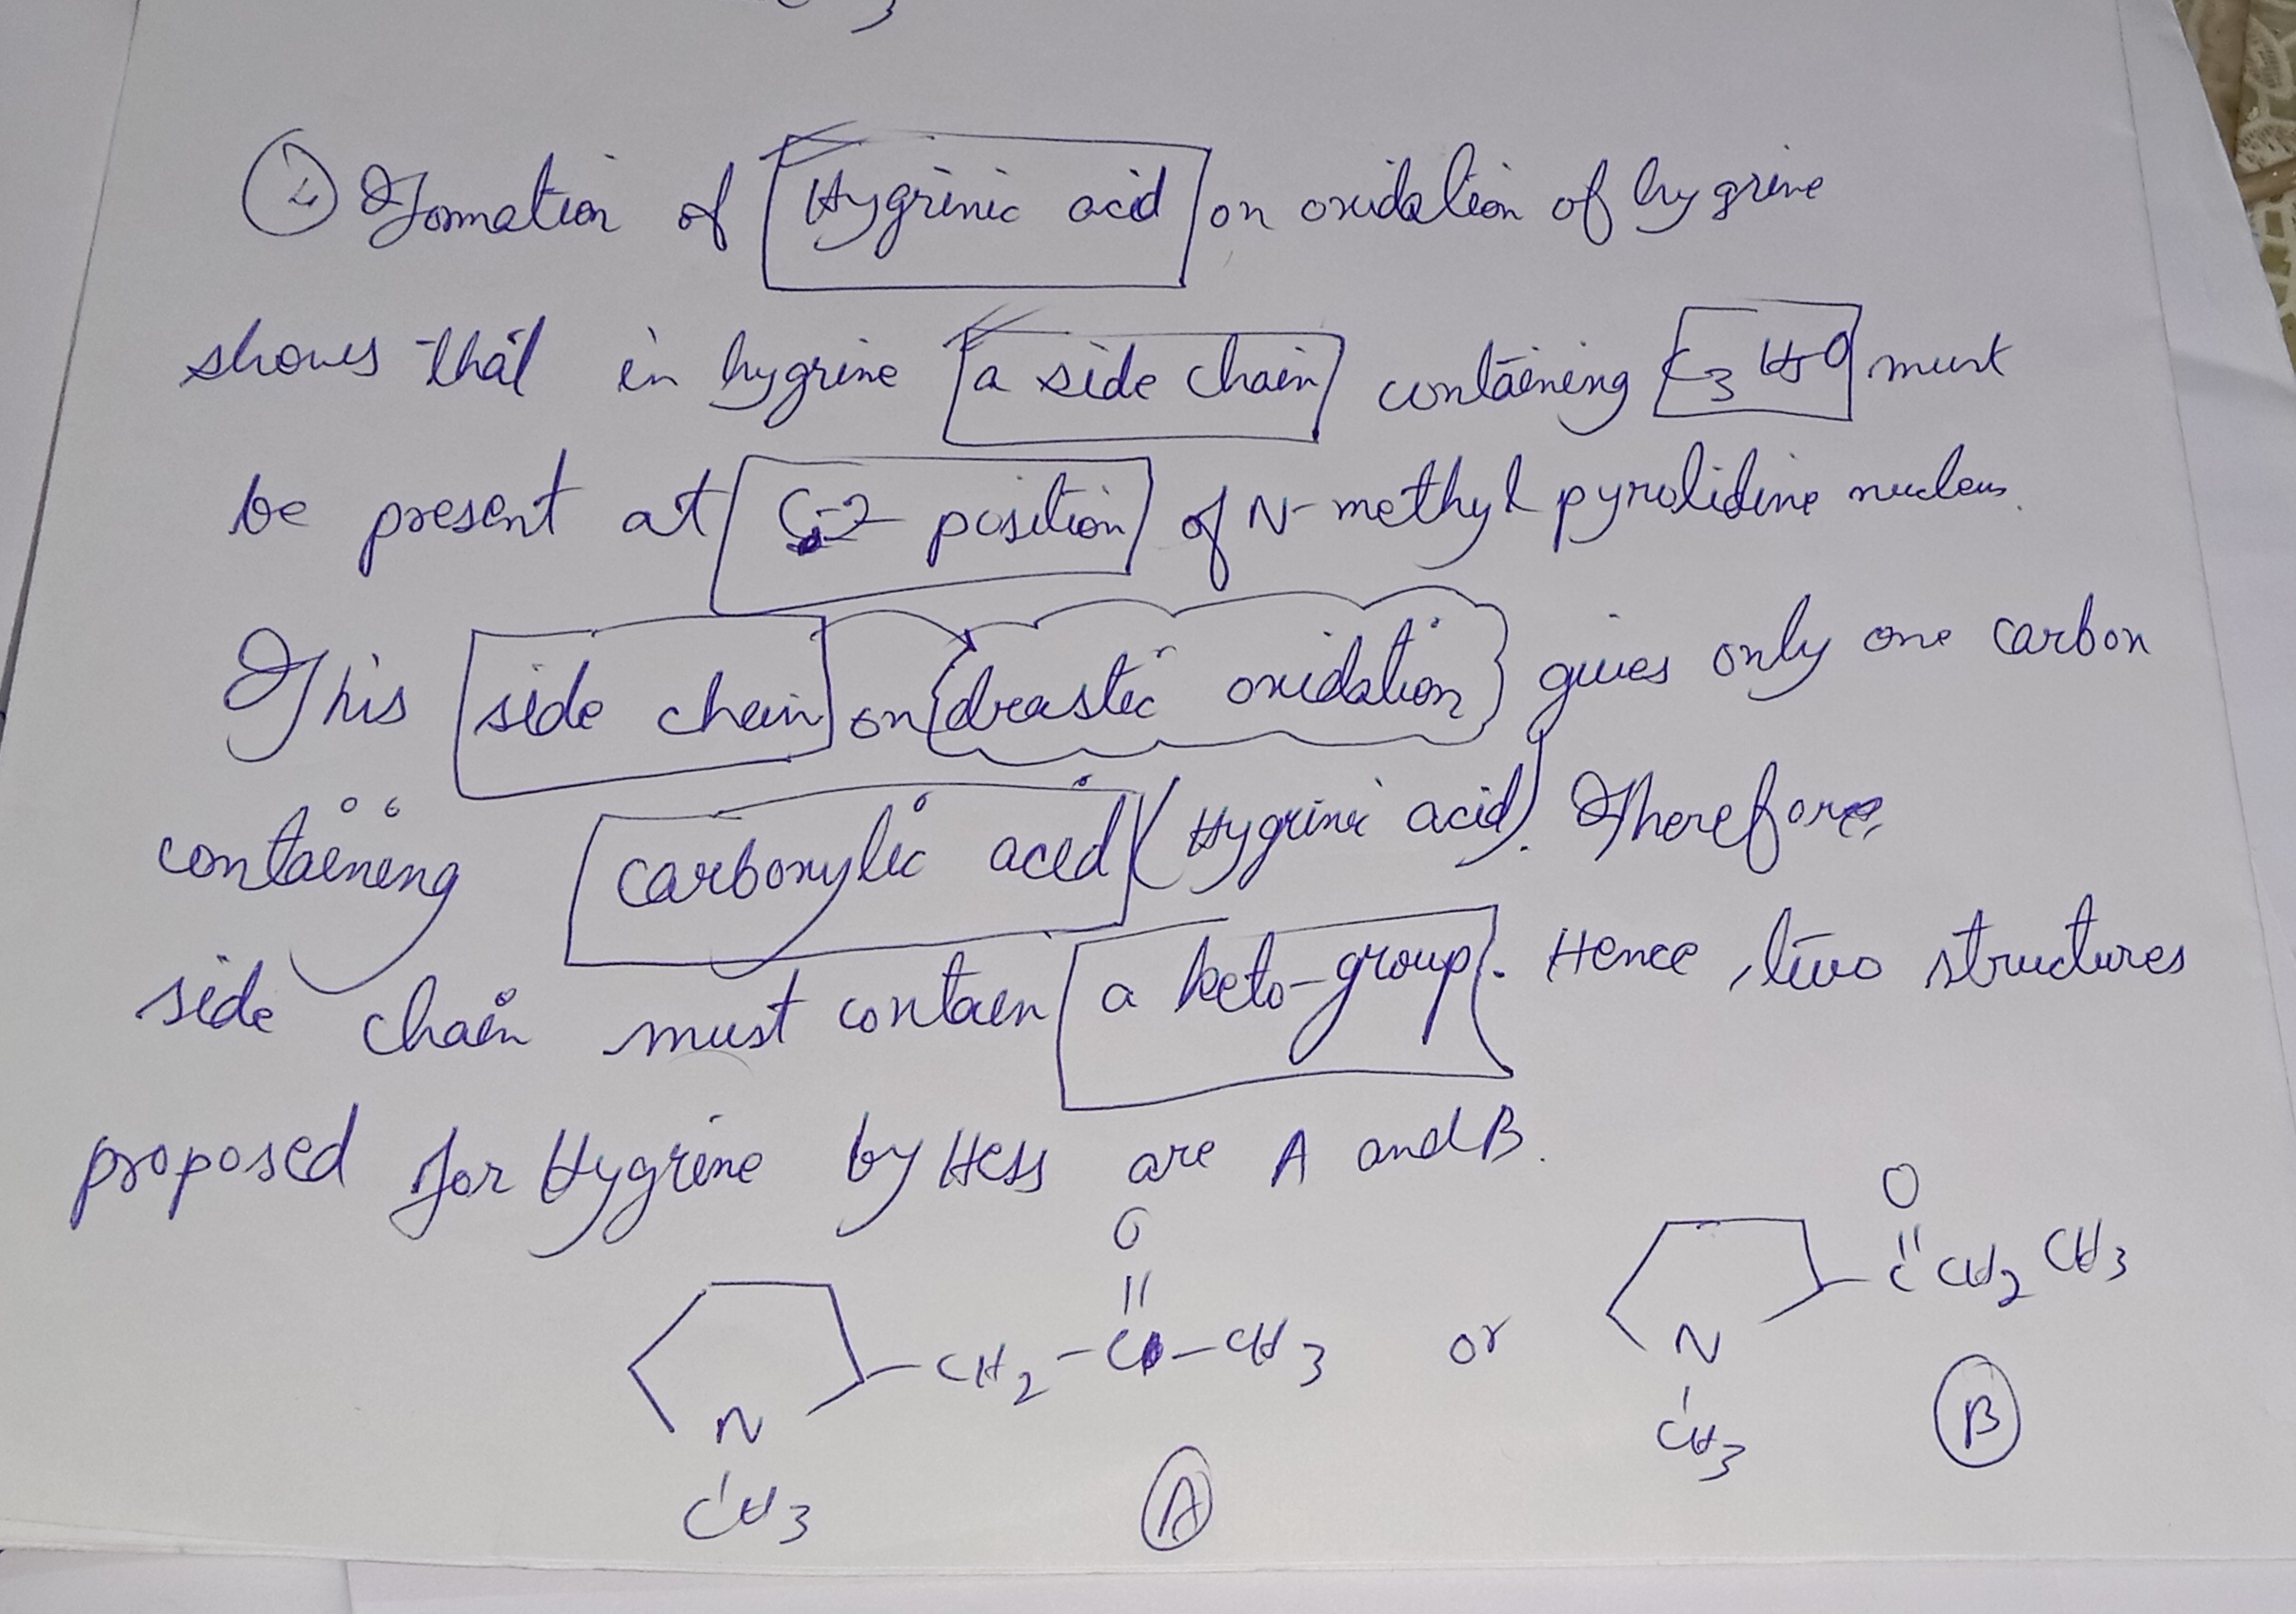 ② Formation of Hygrinic acid on oxidation of hygrine
shows that in hygrine a side chain containing C3H5O must
be present at C-2 position of N-methyl pyrolidine nucleus.
This side chain on drastic oxidation gives only one carbon
containing carboxylic acid (Hygrinic acid). Therefore,
side chain must contain a keto-group. Hence, two structures
proposed for Hygrine by Hess are A and B.
O
O
C CH2 CH3
-CH2-C-CH3 or
N
N
CH3
B
CH3
A